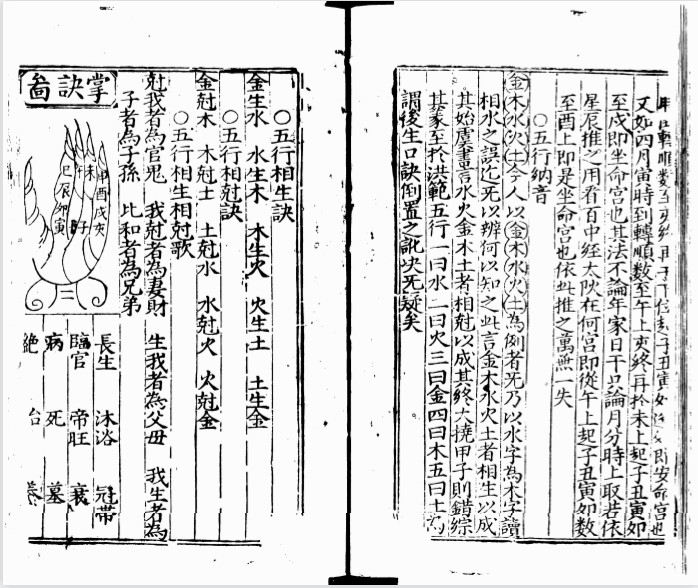 轉順數至亥終再于子丑寅如即安命宮也
又如四月寅時到轉順數至午上亥終再於未上起子丑寅如
至戌即坐命宮也其法不論年家日干只論月分時上取若依
星辰推之用看百中經太陽在何宮即從午上起子丑寅如數
至酉上即是坐命宮也依此推之萬無一失
○五行納音
金木水火土今人以金木水火土為例者非乃以水字為木字讀
相水之誤訖死以辨何以知之此言金木水火土者相生以成
其始虞書言水火金木土者相尅以成其終大撓甲子則錯綜
其象至於洪範五行一曰水二曰火三曰金四曰木五曰土為
謂後生口訣倒置之訛決死疑矣
○五行相生訣
金生水 水生木 木生火 火生土 土生金
○五行相尅訣
金尅木 木尅土 土尅水 水尅火 火尅金
○五行相生相尅歌
尅我者為官鬼 我尅者為妻財 生我者為父母 我生者為
子者為子孫 比和者為兄弟
掌訣啚
巳辰卯寅
午 丑
未 子
申酉戌亥
長生 沐浴 冠帶
臨官 帝旺 衰
病 死 墓
絶 台 養